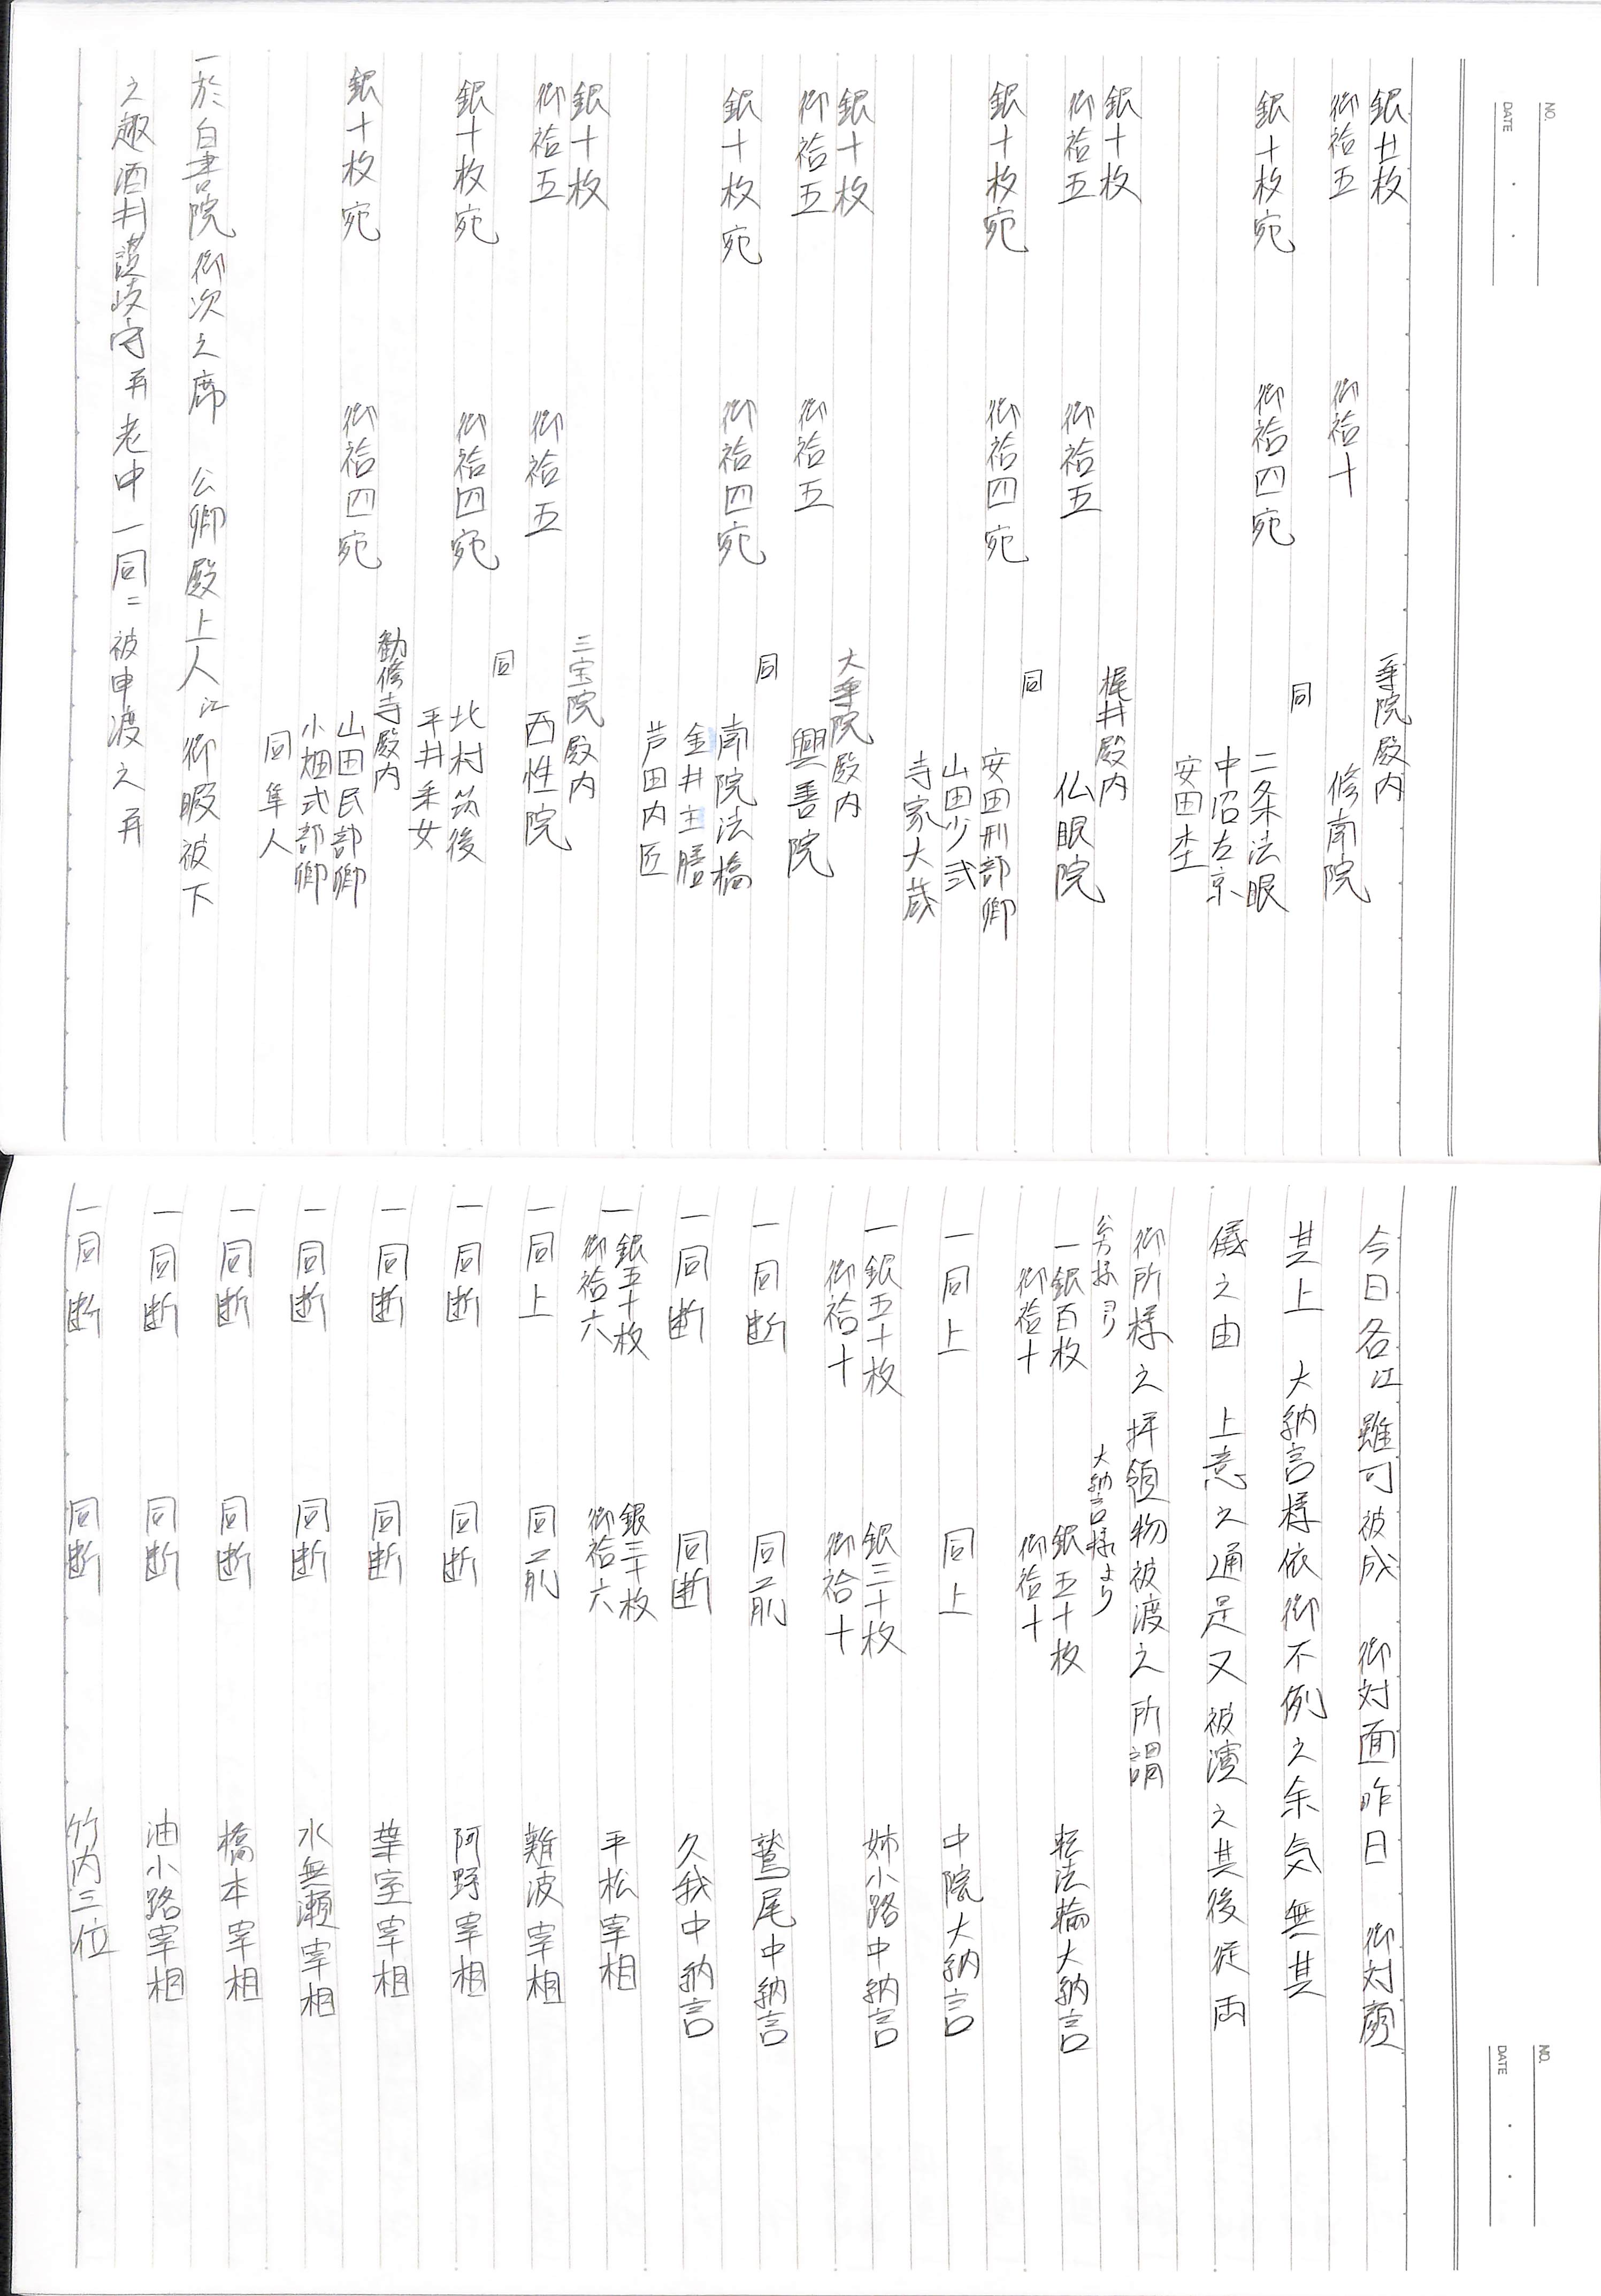 NO.
DATE
銀廿枚
一乗院殿内
御袷五　御袷十　修南院
同
銀十枚宛　御袷四宛　二条法眼
中沼左京
安田杢
銀十枚
梶井殿内
御袷五　御袷五　仏眼院
同
銀十枚宛　御袷四宛　安田刑部卿
山田少弐
寺家大蔵
銀十枚
大乗院殿内
御袷五　御袷五　興善院
同
銀十枚宛　御袷四宛　南院法橋
金井主膳
芦田内匠
銀十枚
三宝院殿内
御袷五　御袷五　西性院
同
銀十枚宛　御袷四宛　北村筑後
平井采女
勧修寺殿内
銀十枚宛　御袷四宛　山田民部卿
小畑式部卿
同隼人
一於白書院御次之席　公卿殿上人江御暇被下
之趣酒井讃岐守再老中一同ニ被申渡之再
NO.
DATE
今日各江雖可被成　御対面昨日　御対顔
其上　大納言様依御不例之余気無其
儀之由　上意之通是又被演之其後従両
御所様之拝領物被渡之所謂
公方様ヨリ　大納言様より
一銀百枚　銀五十枚　転法輪大納言
御袷十　御袷十
一同上　同上　中院大納言
一銀五十枚　銀三十枚　姉小路中納言
御袷十　御袷十
一同断　同前　鷲尾中納言
一同断　同断　久我中納言
一銀五十枚　銀三十枚　平松宰相
御袷六　御袷六
一同上　同前　難波宰相
一同断　同断　阿野宰相
一同断　同断　葉室宰相
一同断　同断　水無瀬宰相
一同断　同断　橋本宰相
一同断　同断　油小路宰相
一同断　同断　竹内三位